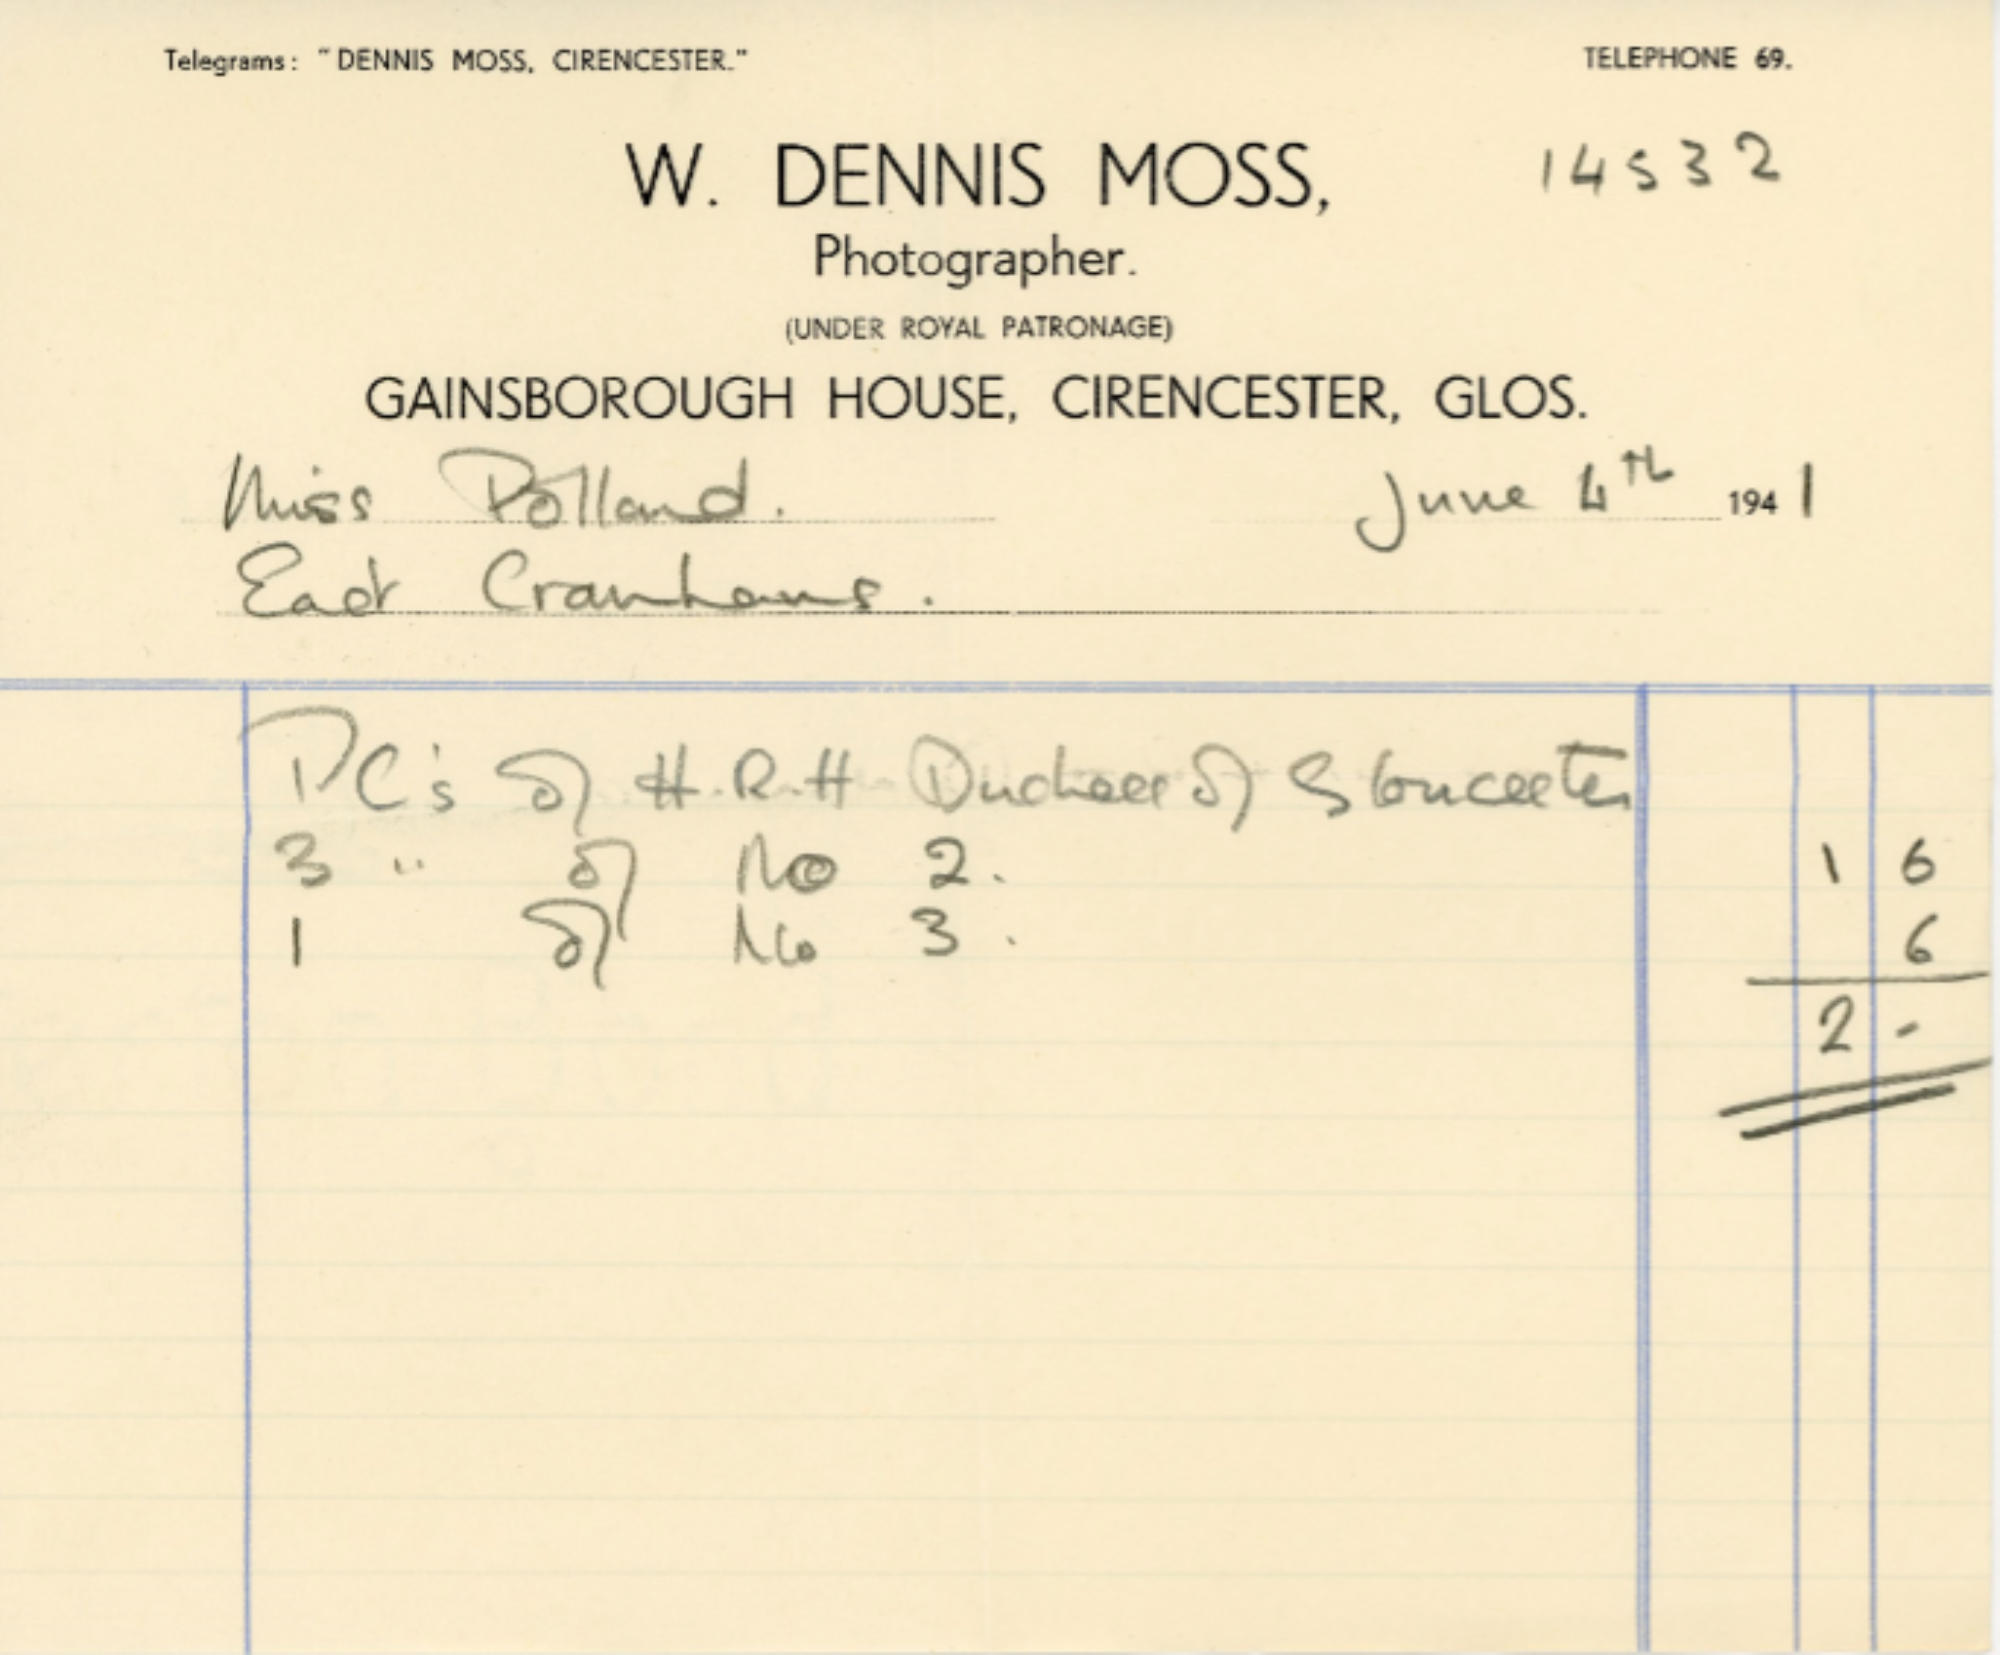 Telegrams: "DENNIS MOSS, CIRENCESTER."
TELEPHONE 69.
W. DENNIS MOSS,
14532
Photographer.
(UNDER ROYAL PATRONAGE)
GAINSBOROUGH HOUSE, CIRENCESTER, GLOS.
Miss Polland. June 4th 1941
East Cranhams.
PC's of H.R.H Duchess of Gloucester
3 " of No 2. 1 6
1 of No 3. 6
2 -